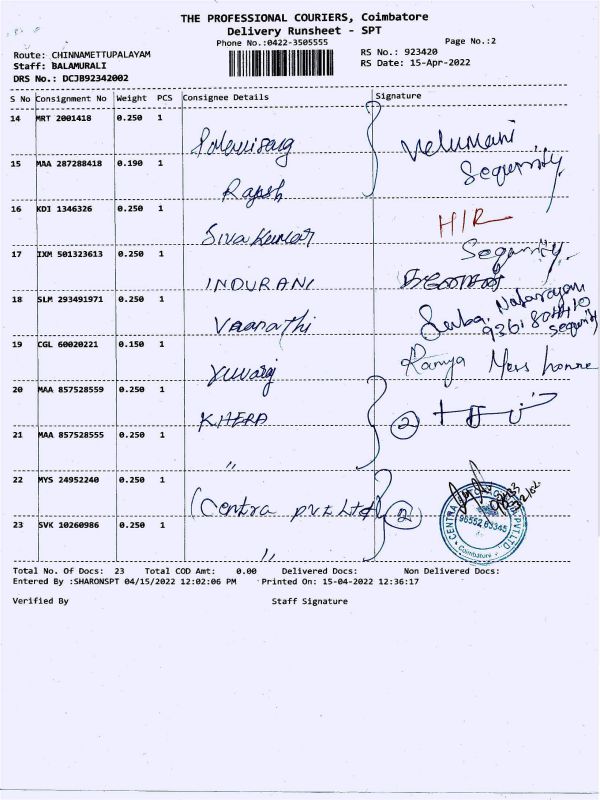 THE PROFESSIONAL COURIERS, Coimbatore
Delivery Runsheet - SPT
Phone No.:0422-3505555
Page No.:2
Route: CHINNAMETTUPALAYAM
RS No.: 923420
Staff: BALAMURALI
RS Date: 15-Apr-2022
DRS No.: DCJB92342002
S No Consignment No Weight PCS Consignee Details Signature
14 MRT 2001418 0.250 1
Velumani
15 MAA 287288418 0.190 1
Sequrity
Rajesh
16 KDI 1346326 0.250 1
H/R
Sivakumar
17 IXM 501323613 0.250 1
Sequrity
INDURANI
18 SLM 293491971 0.250 1
Vaanathi
sequrity
19 CGL 60020221 0.150 1
Ramya
Yuvaraj
20 MAA 857528559 0.250 1
KHERA
2
21 MAA 857528555 0.250 1
"
22 MYS 24952240 0.250 1
(Centra pvt Ltd)
2
23 SVK 10260986 0.250 1
96552 65345
Coimbatore
"
Total No. Of Docs: 23 Total COD Amt: 0.00 Delivered Docs: Non Delivered Docs:
Entered By :SHARONSPT 04/15/2022 12:02:06 PM Printed On: 15-04-2022 12:36:17
Verified By Staff Signature